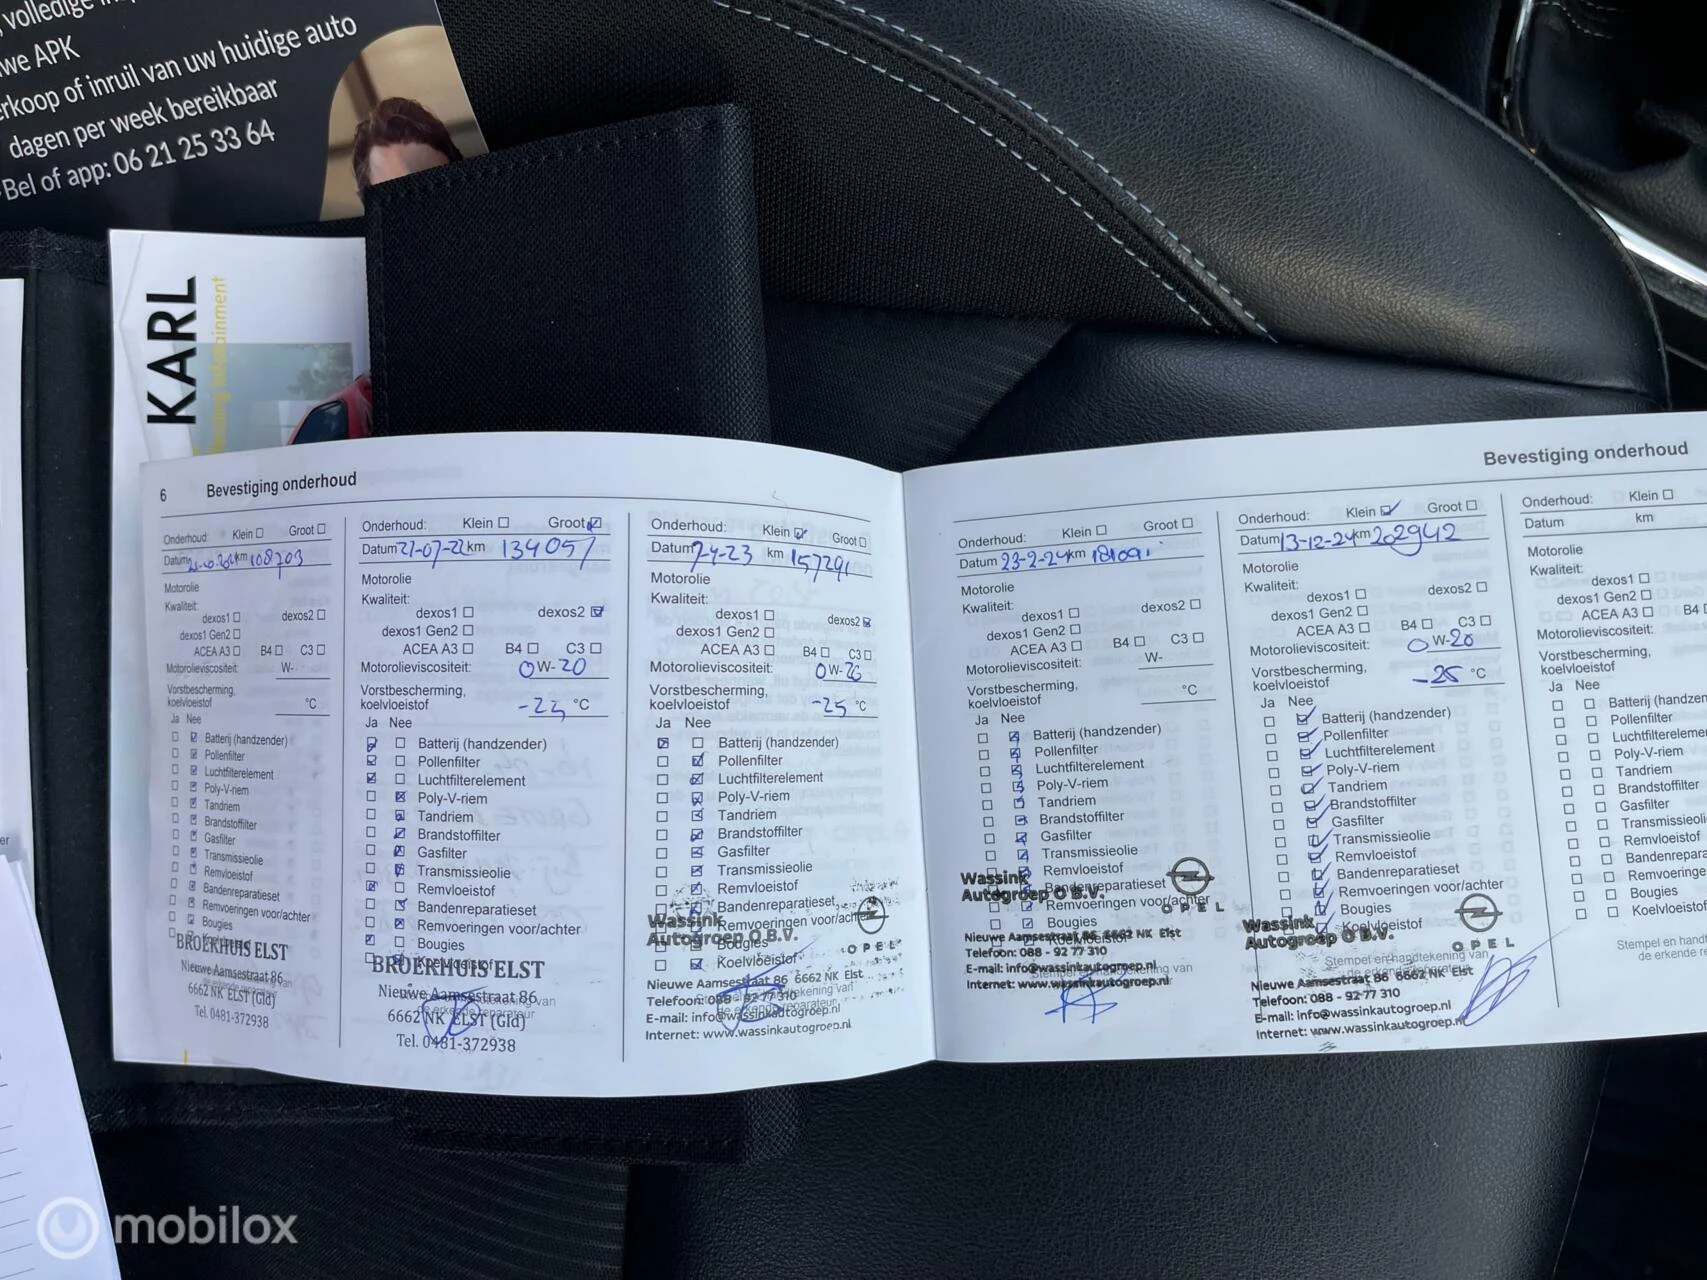 volledige
we APK
erkoop of inruil van uw huidige auto
dagen per week bereikbaar
Bel of app: 06 21 25 33 64
KARL
6 Bevestiging onderhoud
Onderhoud: Klein Groot
Datum km 108203
Motorolie
Kwaliteit:
dexos1 dexos2
dexos1 Gen2
ACEA A3 B4 C3
Motorolieviscositeit: W-
Vorstbescherming,
koelvloeistof °C
Ja Nee
Batterij (handzender)
Pollenfilter
Luchtfilterelement
Poly-V-riem
Tandriem
Brandstoffilter
Gasfilter
Transmissieolie
Remvloeistof
Bandenreparatieset
Remvoeringen voor/achter
Bougies
BROERHUIS ELST
Nieuwe Aamsestraat 86
6662 NK ELST (Gld)
Tel. 0481-372938
Onderhoud: Klein Groot
Datum 21-07-22 km 134057
Motorolie
Kwaliteit:
dexos1 dexos2
dexos1 Gen2
ACEA A3 B4 C3
Motorolieviscositeit: 0 W-20
Vorstbescherming,
koelvloeistof °C
Ja Nee
Batterij (handzender)
Pollenfilter
Luchtfilterelement
Poly-V-riem
Tandriem
Brandstoffilter
Gasfilter
Transmissieolie
Remvloeistof
Bandenreparatieset
Remvoeringen voor/achter
Bougies
Koelvloeistof
BROERHUIS ELST
Nieuwe Aamsestraat 86
6662 NK ELST (Gld)
Tel. 0481-372938
Onderhoud: Klein Groot
Datum 7-4-23 km 157291
Motorolie
Kwaliteit:
dexos1 dexos2
dexos1 Gen2
ACEA A3 B4 C3
Motorolieviscositeit: 0 W-20
Vorstbescherming,
koelvloeistof -25 °C
Ja Nee
Batterij (handzender)
Pollenfilter
Luchtfilterelement
Poly-V-riem
Tandriem
Brandstoffilter
Gasfilter
Transmissieolie
Remvloeistof
Bandenreparatieset
Remvoeringen voor/achter
Bougies
Koelvloeistof
Wassink
Autogroep O B.V.
OPEL
Nieuwe Aamsestraat 86 6662 NK Elst
Telefoon: 088 - 92 77 310
E-mail: info@wassinkautogroep.nl
Internet: www.wassinkautogroep.nl
Bevestiging onderhoud
Onderhoud: Klein Groot
Datum 23-2-24 km 181091
Motorolie
Kwaliteit:
dexos1 dexos2
dexos1 Gen2
ACEA A3 B4 C3
Motorolieviscositeit: W-
Vorstbescherming,
koelvloeistof °C
Ja Nee
Batterij (handzender)
Pollenfilter
Luchtfilterelement
Poly-V-riem
Tandriem
Brandstoffilter
Gasfilter
Transmissieolie
Remvloeistof
Bandenreparatieset
Remvoeringen voor/achter
Bougies
Koelvloeistof
Wassink
Autogroep O B.V.
OPEL
Nieuwe Aamsestraat 86 6662 NK Elst
Telefoon: 088 - 92 77 310
E-mail: info@wassinkautogroep.nl
Internet: www.wassinkautogroep.nl
Onderhoud: Klein Groot
Datum 13-12-24 km 202942
Motorolie
Kwaliteit:
dexos1 dexos2
dexos1 Gen2
ACEA A3 B4 C3
Motorolieviscositeit: 0 W-20
Vorstbescherming,
koelvloeistof -25 °C
Ja Nee
Batterij (handzender)
Pollenfilter
Luchtfilterelement
Poly-V-riem
Tandriem
Brandstoffilter
Gasfilter
Transmissieolie
Remvloeistof
Bandenreparatieset
Remvoeringen voor/achter
Bougies
Koelvloeistof
Wassink
Autogroep O B.V.
OPEL
Stempel en handtekening van
de erkende reparateur
Nieuwe Aamsestraat 86 6662 NK Elst
Telefoon: 088 - 92 77 310
E-mail: info@wassinkautogroep.nl
Internet: www.wassinkautogroep.nl
Onderhoud: Klein
Datum km
Motorolie
Kwaliteit:
dexos1
dexos1 Gen2
ACEA A3 B4
Motorolieviscositeit:
Vorstbescherming,
koelvloeistof
Ja Nee
Batterij (handzen
Pollenfilter
Luchtfilterelemen
Poly-V-riem
Tandriem
Brandstoffilter
Gasfilter
Transmissieolie
Remvloeistof
Bandenrepara
Remvoeringe
Bougies
Koelvloeistof
Stempel en handt
de erkende re
mobilox